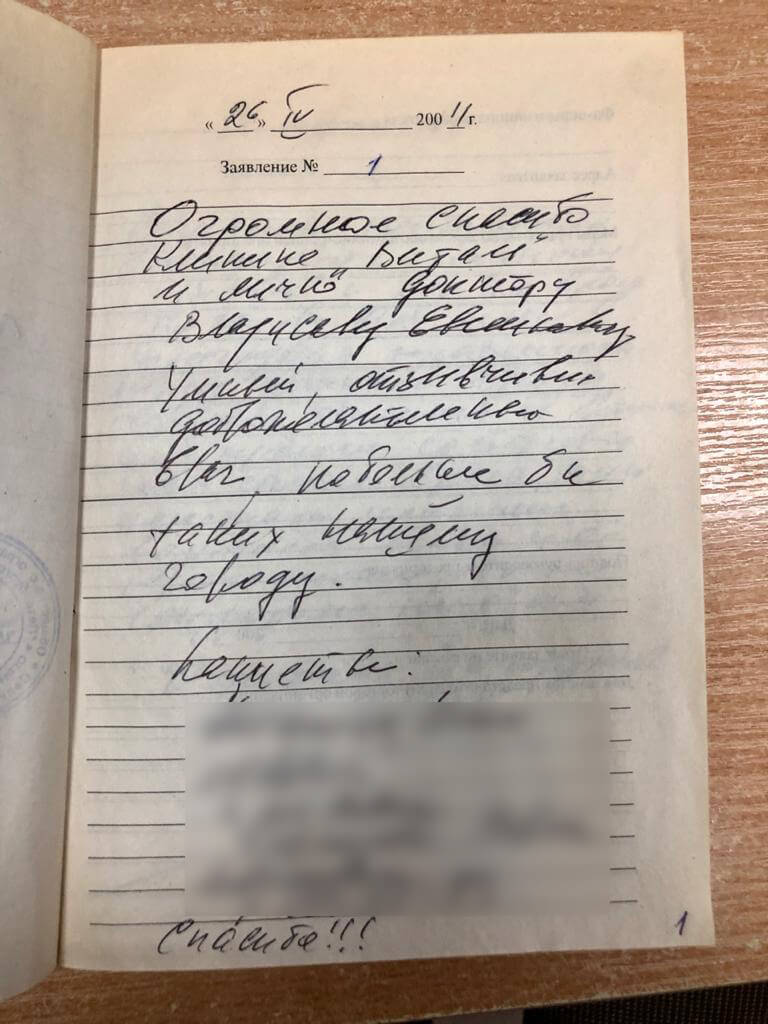 « 26 » IV 200 11 г.
Заявление № 1
Огромное спасибо
Клинике "Витали"
и лично доктору
Евгеньевичу
Умный, отзывчивый
доброжелательный
врач, побольше бы
таких нашему
городу.
Пациенты:
Спасибо!!!
1